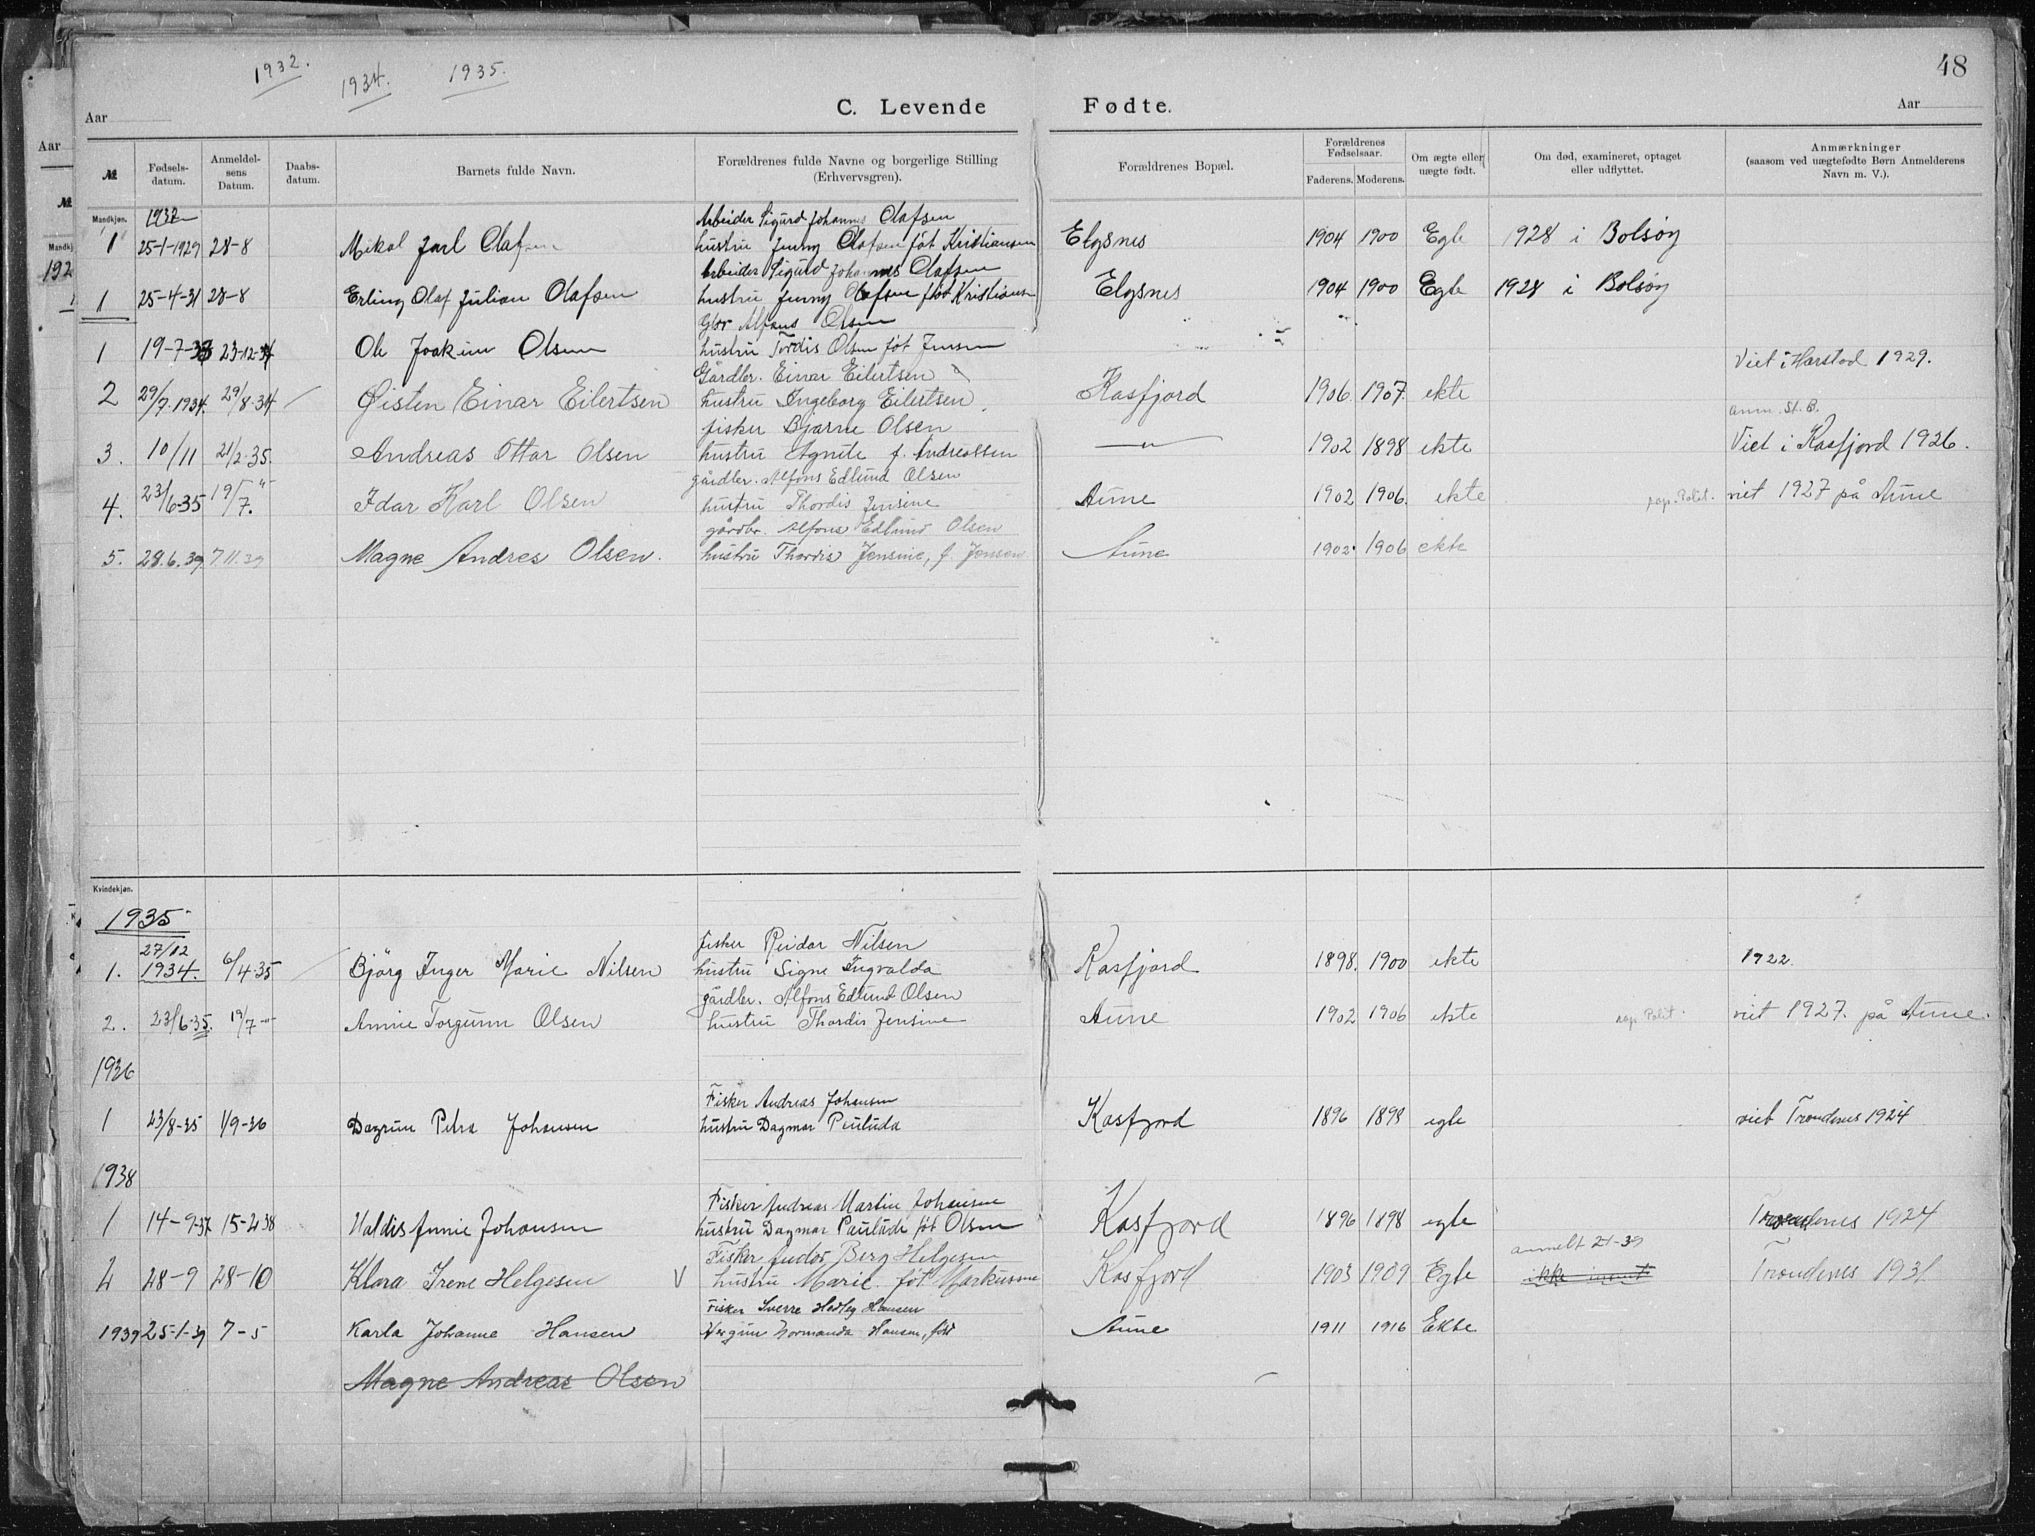 1932. 1934. 1935.
48
Aar C. Levende Fødte. Aar
№ Fødsels-datum. Anmeldel-sens Datum. Daabs-datum. Barnets fulde Navn. Forældrenes fulde Navne og borgerlige Stilling (Erhvervsgren). Forældrenes Bopæl. Forældrenes Fødselsaar. Faderens. Moderens. Om ægte eller uægte født. Om død, examineret, optaget eller udflyttet. Anmærkninger (saasom ved uægtefødte Børn Anmelderens Navn m. V.).
Mandkjøn. 1932
Arbeider Sigurd Johannes Olafsen
1 25-1-1929 28-8 Mikal Jarl Olafsen hustru Jenny Olafsen føt Kristiansen Elgsnes 1904 1900 Egte 1928 i Bolsøy
Arbeider Sigurd Johannes Olafsen
1 25-4-31 28-8 Erling Olaf Julian Olafsen hustru Jenny Olafsen føt Kristiansen Elgsnes 1904 1900 Egte 1928 i Bolsøy
Gbr Alfons Olsen
1 19-7-33 23-12-34 Ole Joakim Olsen hustru Tordis Olsen føt Jensen
Viet i Harstad 1929.
Gårdbr. Einar Eilertsen
2 29/7.1934. 29/8-34 Øisten Einar Eilertsen hustru Ingeborg Eilertsen Kasfjord 1906. 1907. ekte
anm. St. B.
fisker Bjarne Olsen
3. 10/11 21/2-35. Andreas Ottar Olsen hustru Agnete f. Andreassen —"— 1902 1898 ekte Viet i Kasfjord 1926.
gårdbr. Alfons Edlund Olsen
4. 23/6-35 19/7. -"- Idar Karl Olsen hustru Thordis Jensine Aune 1902 1906. ekte rap. Polit. viet 1927 på Aune
gårdbr. Alfons Edlund Olsen
5. 28.6.39 7.11.39 Magne Andres Olsen. hustru Thordis Jensine, f. Jensen Aune 1902. 1906 ekte
Kvindekjøn.
1935
27/12 fisker Reidar Nilsen
1. 1934. 6/4-35 Björg Inger Marie Nilsen hustru Signe Ingvalda Kasfjord 1898. 1900 ekte 1922.
gårdbr. Alfons Edlund Olsen
2. 23/6-35. 19/7 -"- Annie Torgunn Olsen hustru Thordis Jensine Aune 1902 1906 ekte rap. Polit. viet 1927. på Aune.
1936
Fisker Andreas Johansen
1 23/8-35 1/9-36 Dagrun Petra Johansen hustru Dagmar Pauluda Kasfjord 1896 1898 egte viet Trondenes 1924
1938
Fisker Andreas Martin Johansen
1 14-9-37 15-2-38 Valdis Annie Johansen hustru Dagmar Paulude føt Olsen Kasfjord 1896 1898 egte Trondenes 1924
Fisker Andor Berg Helgesen anmelt 2-1-39
2 28-9 28-10 Klara Irene Helgesen V hustru Marie føt Markussen Kasfjord 1903 1909 Egte ikke Trondenes 1931
Fisker Sverre Hedley Hansen
1939 25-1-39 7-5 Karla Johanne Hansen Normanda Hansen, født Aune 1911 1916 Ekte
Magne Andreas Olsen